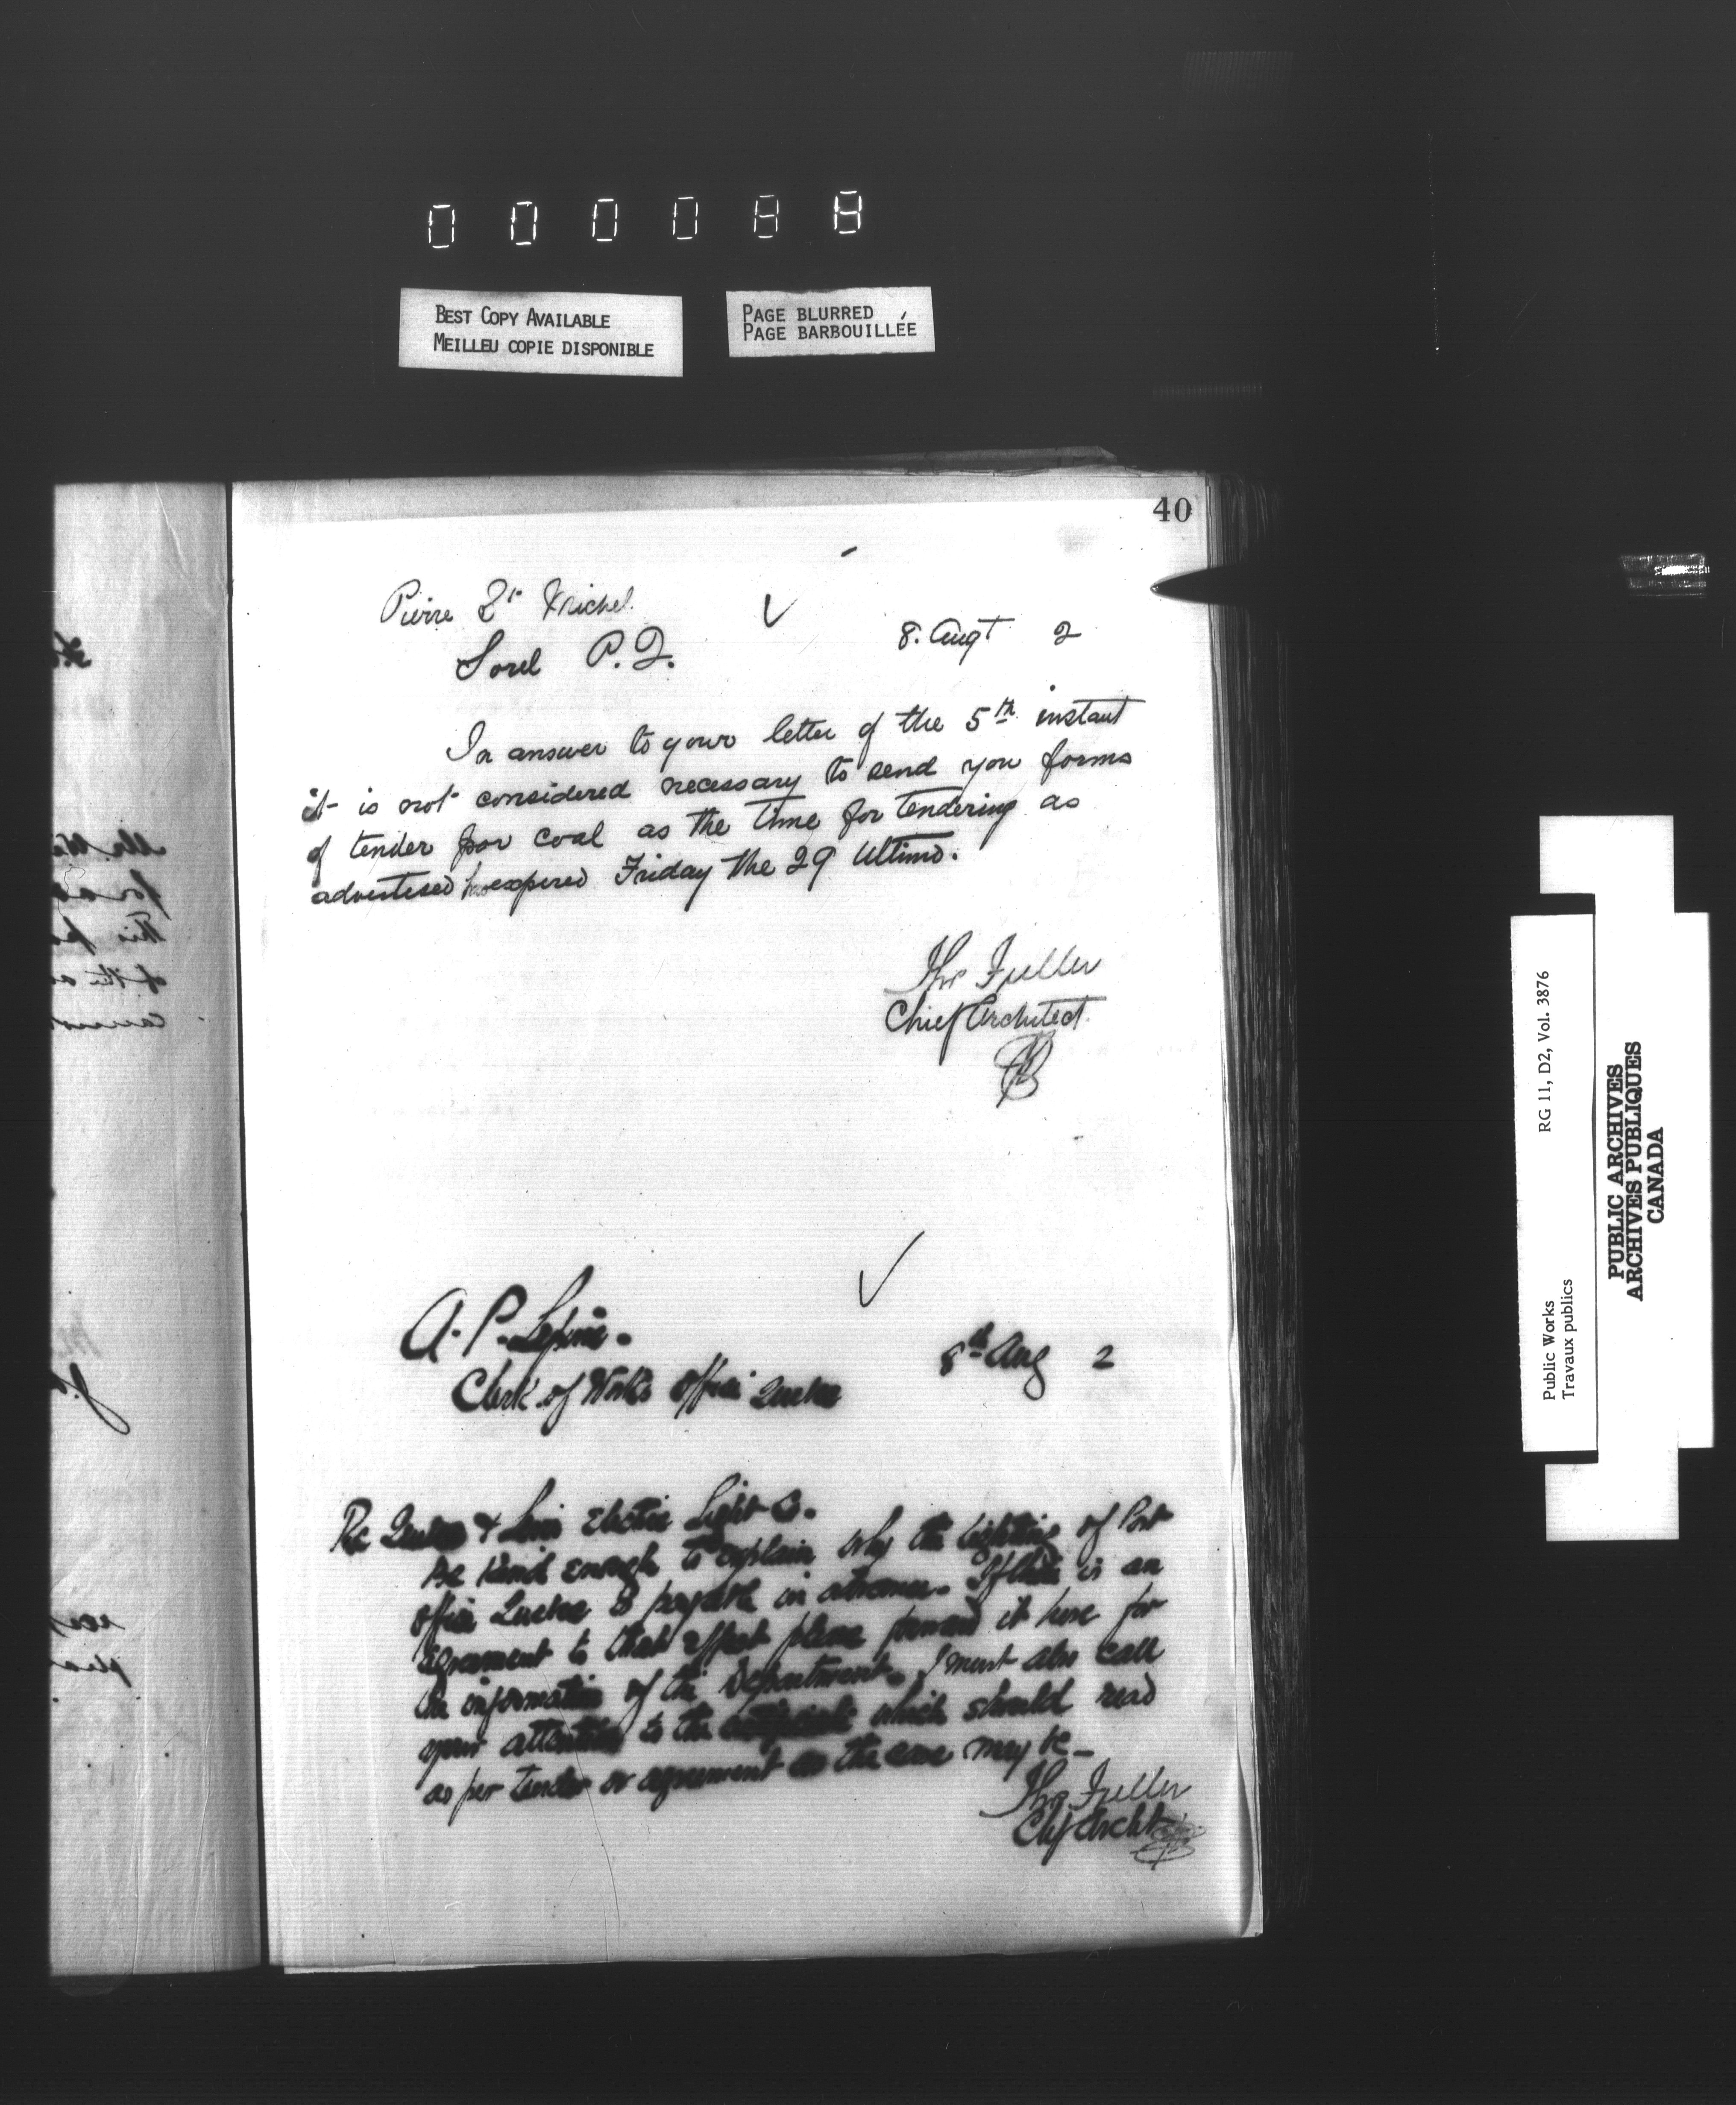 0 0 0 0 8 8
BEST COPY AVAILABLE
MEILLEU COPIE DISPONIBLE
PAGE BLURRED
PAGE BARBOUILLÉE
40
Pierre St Michel
Sorel P.Q.
8. Augt 2
In answer to your letter of the 5th instant
it is not considered necessary to send you forms
of tender for coal as the time for tendering as
advertised has expired Friday the 29 Ultimo.
Thos Fuller
Chief Architect.
A. P. Lepine.
Clerk of Works office Quebec
8th Aug 2
Re Quebec & Levis Electric Light Co.
Be kind enough to explain why the lighting of Post
office Quebec is payable in advance. If there is an
agreement to that effect please forward it here for
the information of the Department. I must also call
your attention to the certificate which should read
as per tender or agreement as the case may be_
Thos Fuller
Chf Archt
RG 11, D2, Vol. 3876
Public Works
Travaux publics
PUBLIC ARCHIVES
ARCHIVES PUBLIQUES
CANADA